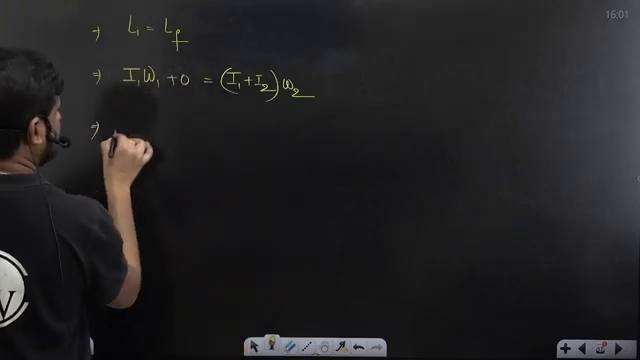 16:01
⇒ L₁ = L_f
⇒ I₁W₁ + 0 = (I₁ + I₂) ω₂
⇒